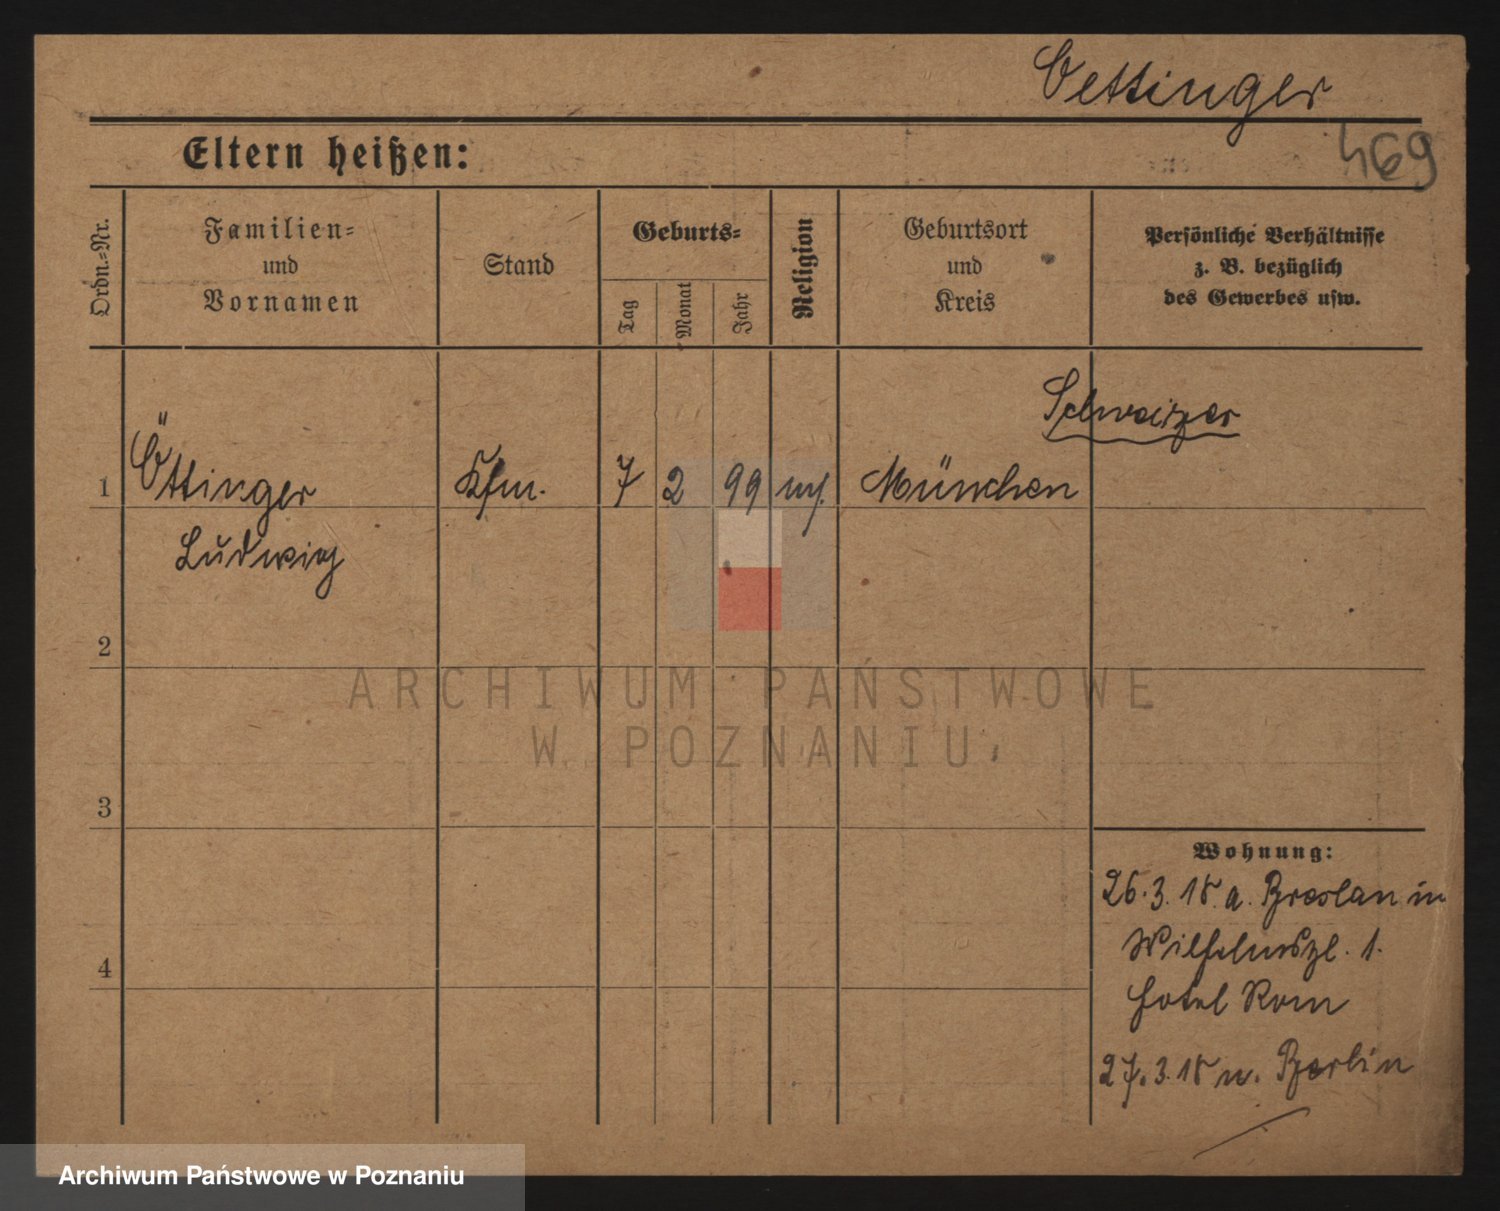 Oettinger
469
Eltern heißen:
Ordn.-Nr.
Familien-
und
Vornamen
Stand
Geburts-
Tag
Monat
Jahr
Religion
Geburtsort
und
Kreis
Persönliche Verhältnisse
z. B. bezüglich
des Gewerbes usw.
Schweizer
1 Öttinger Kfm. 7 2 99 München
Ludwig
2
3
4
Wohnung:
26.3.18. a. Breslau in
Wilhelmspl. 1.
Hotel Rom
27.3.18 n. Berlin
ARCHIWUM PAŃSTWOWE
W POZNANIU
Archiwum Państwowe w Poznaniu